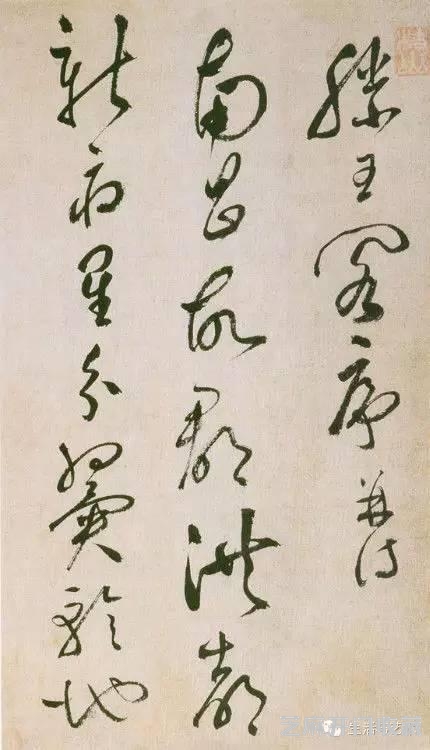 滕王閣序并诗
南昌故郡洪都
新府星分翼軫地